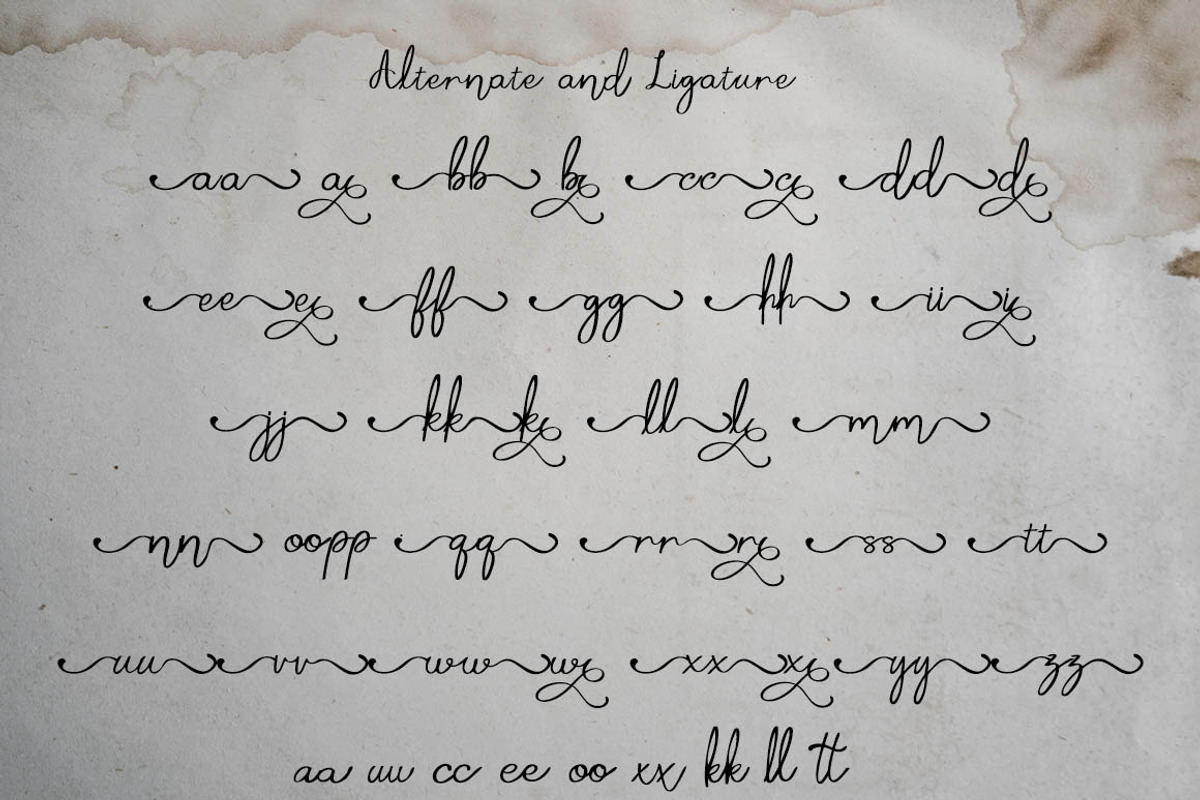 Alternate and Ligature
aa a bb b cc c dd d
ee e ff gg hh ii i
jj kk k ll l mm
nn oopp qq rr r ss tt
uu vv ww w xx x yy zz
aa uu cc ee oo xx kk ll tt